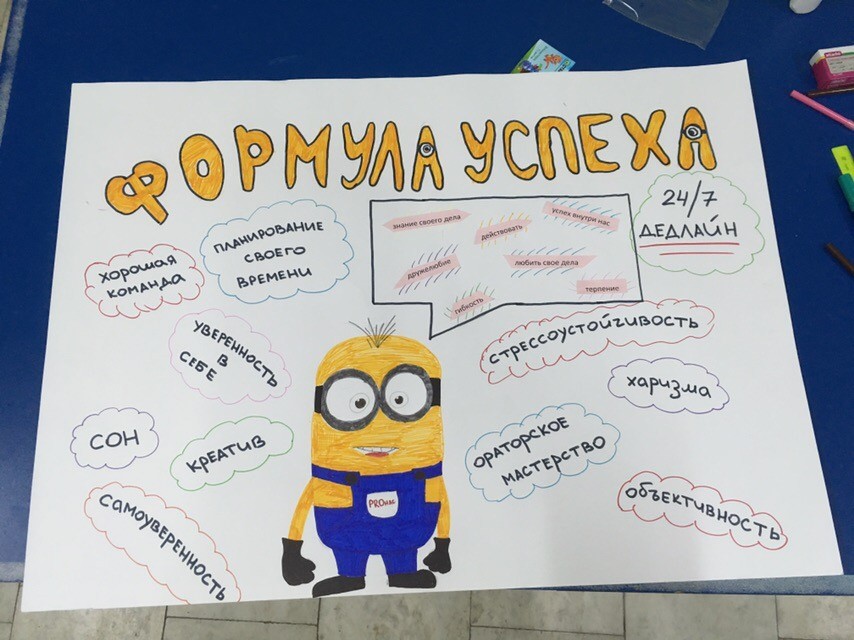 ФОРМУЛА УСПЕХА
хорошая
команда
планирование
своего
времени
знание своего дела
действовать
успех внутри нас
дружелюбие
любить свое дела
гибкость
терпение
24/7
ДЕДЛАЙН
уверенность
в
себе
стрессоустойчивость
харизма
сон
креатив
ораторское
мастерство
самоуверенность
объективность